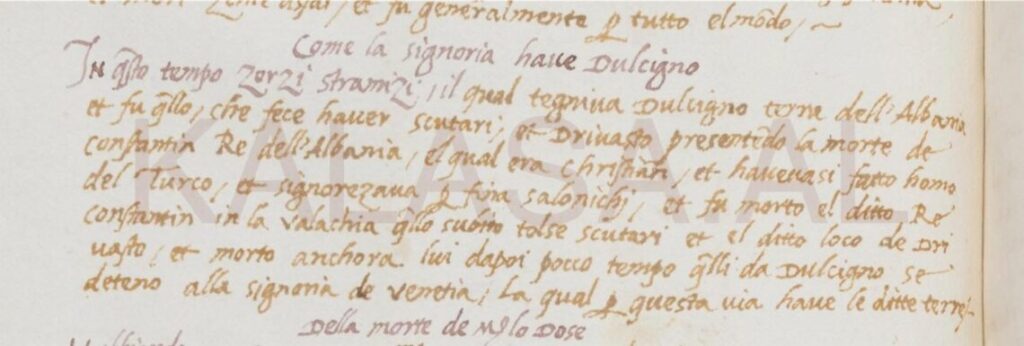 et fu generalmente p tutto el mōdo,
Come la signoria have Dulcigno
In q̄sto tempo Zerzi stramizi, il qual tegniva Dulcigno terra dell'Albania
et fu q̄llo, che fece haver scutari, et Drivasto presentēdo la morte de
constantin Re dell'Albania, el qual era christian, et havevasi fatto homo
del Turco, et signorezava p fina salonichj, et fu morto el ditto Re
constantin in la valachia q̄llo subitto tolse scutari et el ditto loco de Dri
vasto, et morto anchora lui dapoi pocco tempo q̄lli da Dulcigno se
deteno alla signoria de venetia, La qual p questa via have le ditte terre
Della morte de Dose
KALASA.AL